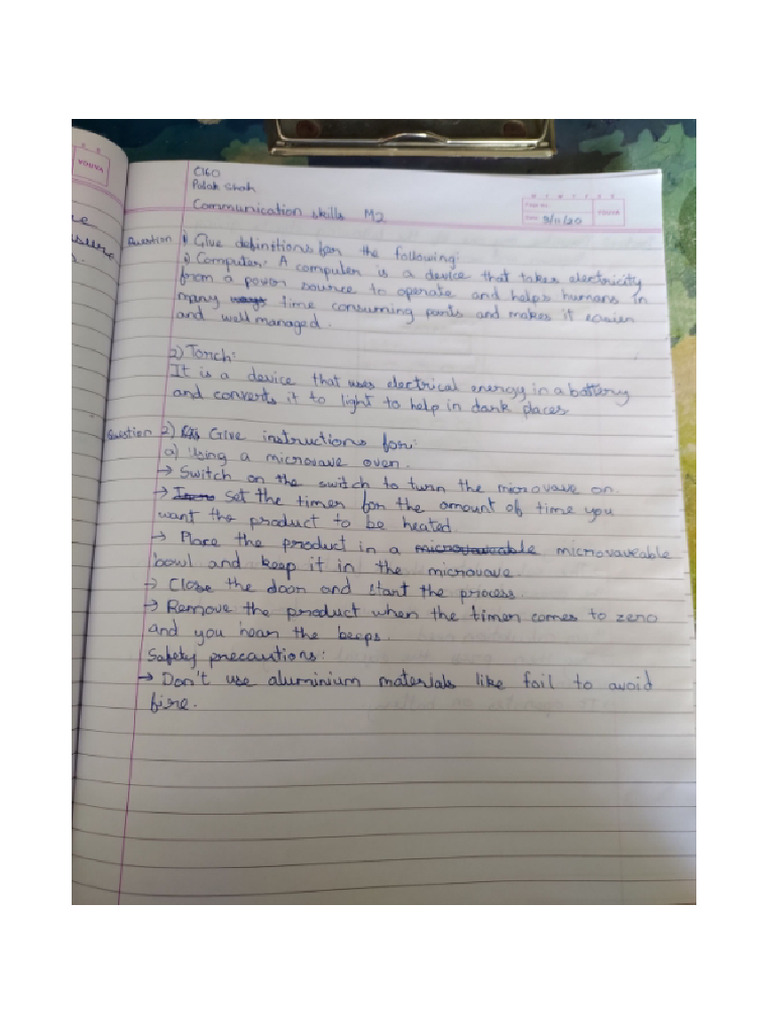 YOUVA
C160
Palak Shah
Communication skills M2
PAGE NO.:
DATE:
YOUVA
Question 1) Give definitions for the following:
1) Computer: A computer is a device that takes electricity
from a power source to operate and helps humans in
many ways time consuming parts and makes it easier
and well managed.
2) Torch:
It is a device that uses electrical energy in a battery
and converts it to light to help in dark places
Question 2) Give instructions for:
a) Using a microwave oven.
→ Switch on the switch to turn the microwave on
→ Set the timer for the amount of time you
want the product to be heated
→ Place the product in a microwaveable microwaveable
bowl and keep it in the microwave.
→ Close the door and start the process.
→ Remove the product when the timer comes to zero
and you hear the beeps.
Safety precautions:
→ Don't use aluminium materials like foil to avoid
fire.